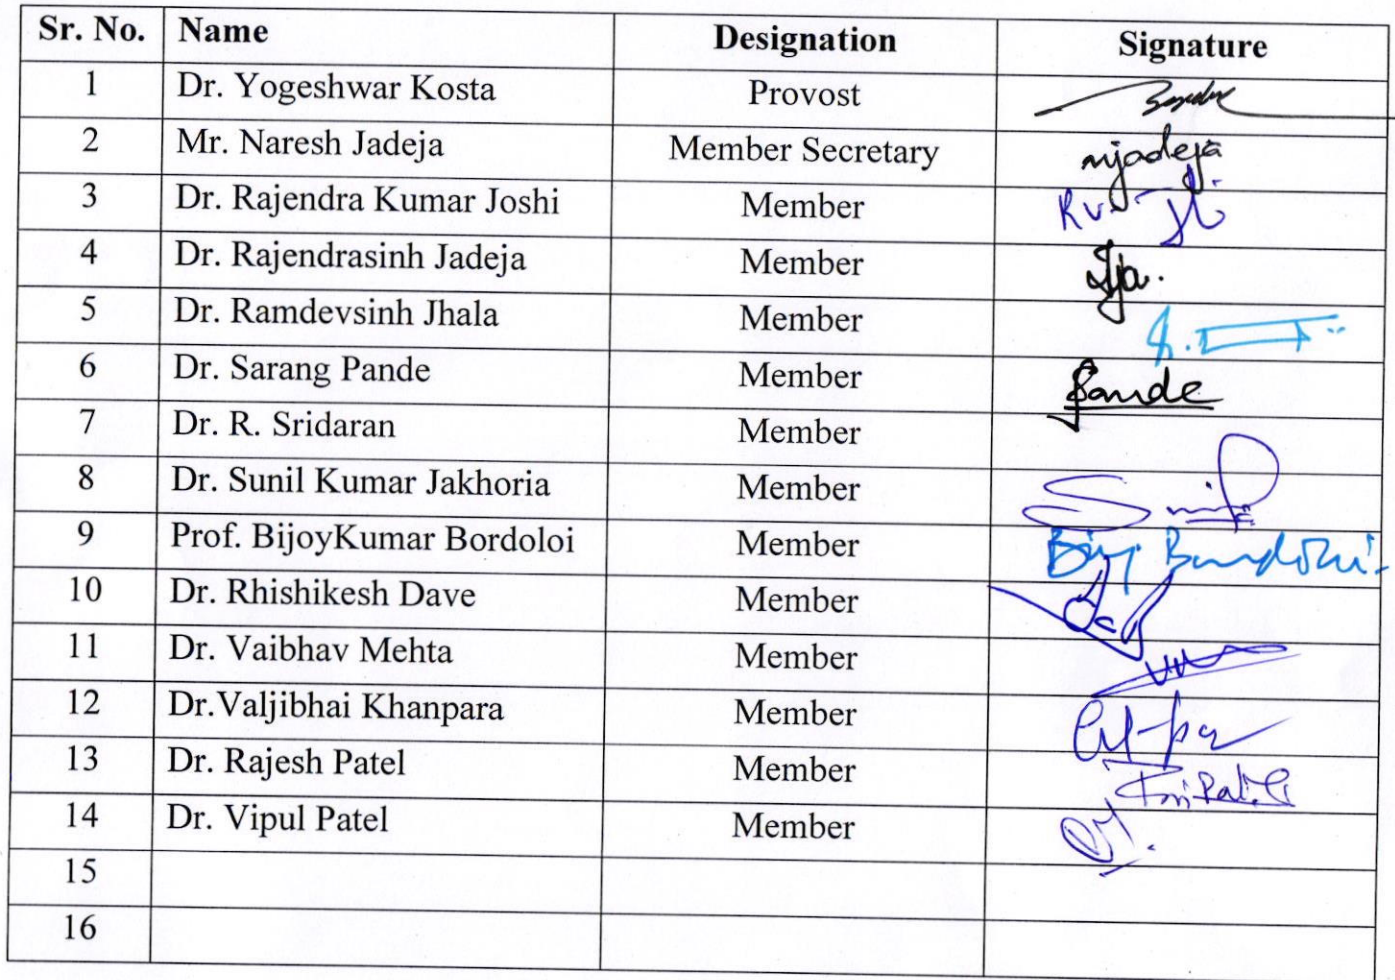 Sr. No. Name Designation Signature
1 Dr. Yogeshwar Kosta Provost
2 Mr. Naresh Jadeja Member Secretary njadeja
3 Dr. Rajendra Kumar Joshi Member
4 Dr. Rajendrasinh Jadeja Member
5 Dr. Ramdevsinh Jhala Member
6 Dr. Sarang Pande Member Pande
7 Dr. R. Sridaran Member
8 Dr. Sunil Kumar Jakhoria Member
9 Prof. BijoyKumar Bordoloi Member
10 Dr. Rhishikesh Dave Member
11 Dr. Vaibhav Mehta Member
12 Dr.Valjibhai Khanpara Member
13 Dr. Rajesh Patel Member
14 Dr. Vipul Patel Member
15
16